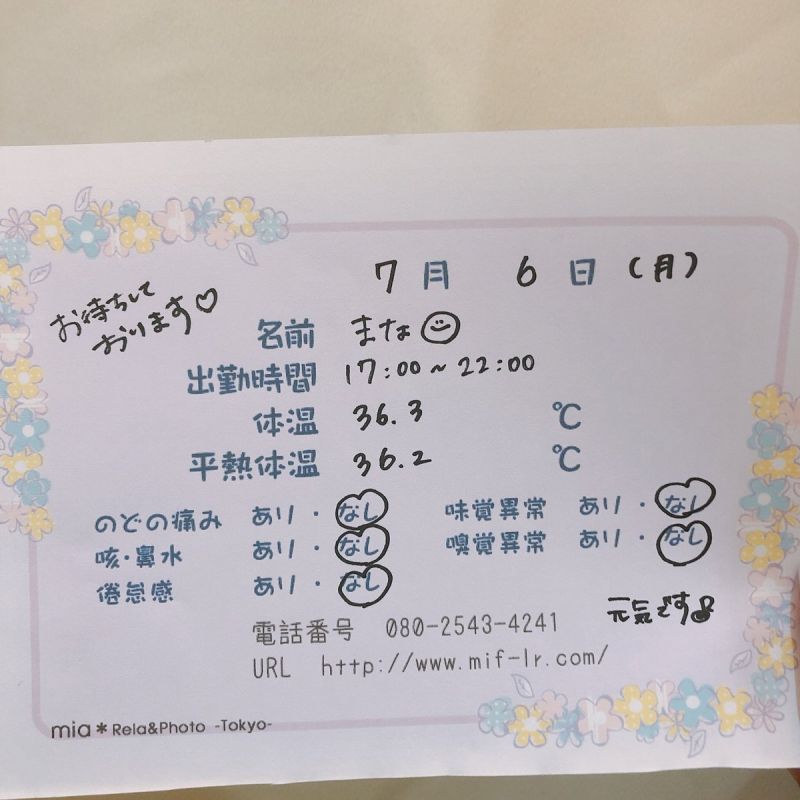 7月 6日(月)
お待ちして
おります♡
名前 まな
出勤時間 17:00~22:00
体温 36.3 ℃
平熱体温 36.2 ℃
のどの痛み あり・なし 味覚異常 あり・なし
咳・鼻水 あり・なし 嗅覚異常 あり・なし
倦怠感 あり・なし
元気です♪
電話番号 080-2543-4241
URL http://www.mif-lr.com/
mia*Rela&Photo -Tokyo-